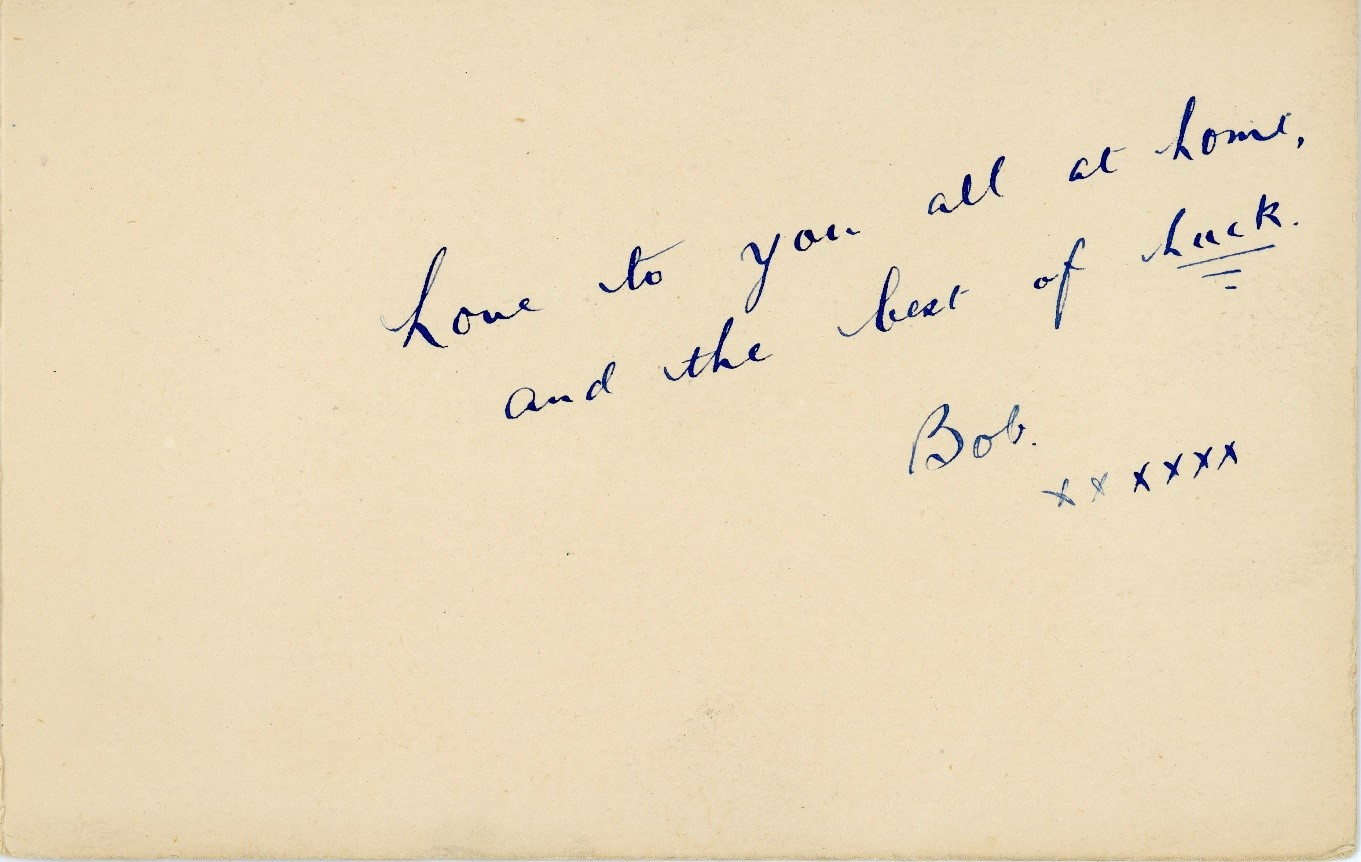 Love to you all at home,
and the best of Luck.
Bob.
x x x x x x